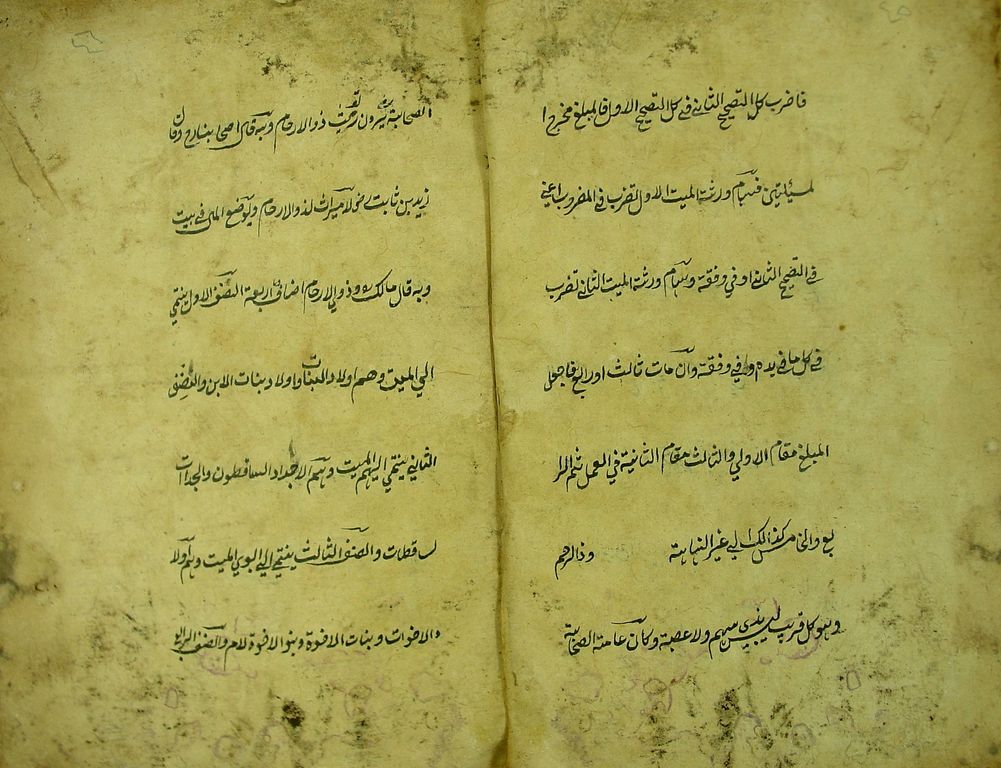 فاضرب كل التصحيح الثاني في كل التصحيح الاول فالمبلغ مخرج ا
لمسئلتين فسهام ورثة الميت الاول تضرب في المضروب اعني
في التصحيح الثاني او في وفقه وسهام ورثة الميت الثاني تضرب
في كل ما في يده او في وفقه وان مات ثالث او رابع فاجعل
المبلغ مقام الاولي والثالث مقام الثانية في العمل ثم الرا
بع والخامس كذلك الي غير النهاية وذالرحم
وهو كل قريب ليس بذي سهم ولا عصبة وكان عامة الصحابة
الصحابة يرون توريث ذو الارحام وبه قال اصحابنا رح وقال
زيد بن ثابت لا ميراث لذو الارحام ويوضع المال في بيت
وبه قال مالك وذوي الارحام اصناف اربعة الصنف الاول ينتمي
الي الميت وهم اولاد البنات واولاد بنات الابن والصنف
الثاني ينتمي اليهم الميت وهم الاجداد الساقطون والجدات
لساقطات والصنف الثالث ينتمي الي ابوي الميت وهم اولا
د الاخوات وبنات الاخوة وبنو الاخوة لام والصنف الرابع